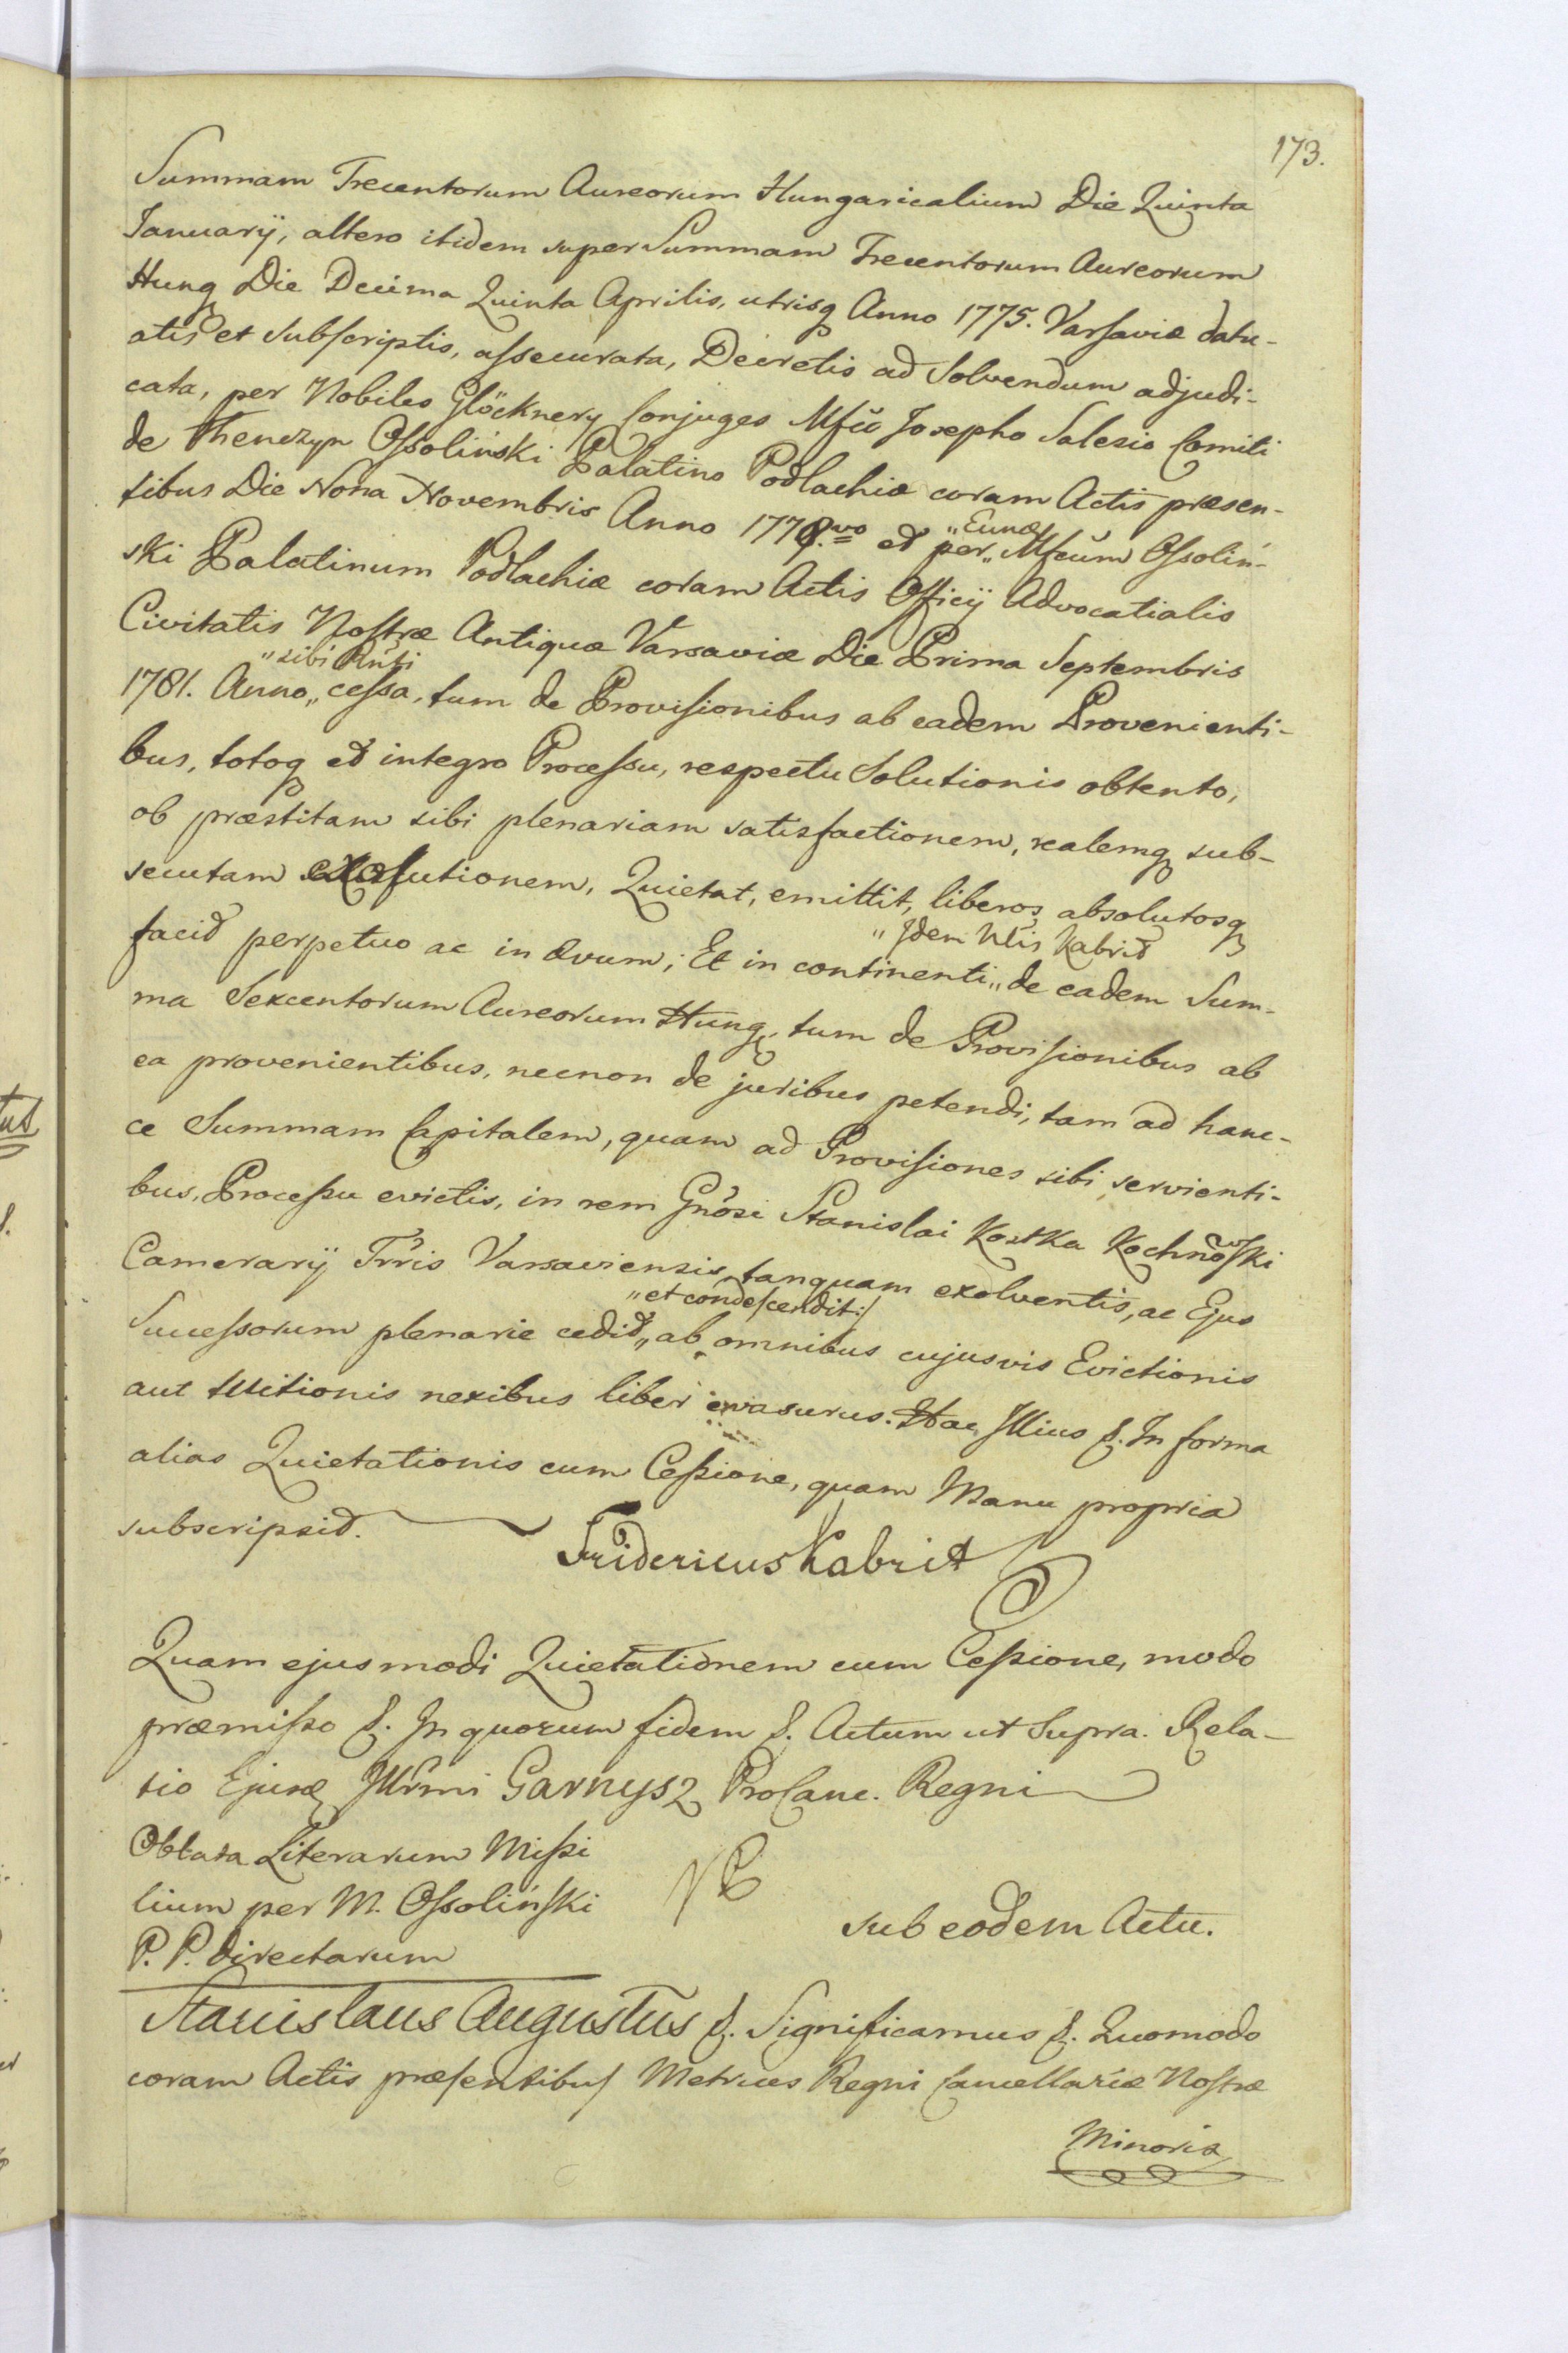 173.
Summam Trecentorum Aureorum Hungaricalium Die Quinta
Januarÿ, altero itidem super Summam Trecentorum Aureorum
Hung Die Decima Quinta Aprilis, utrisq Anno 1775. Varsaviæ datu-
atis et subscriptis, assecurata, Decretis ad solvendum adjudi-
cata, per Nobiles Glöcknery Conjuges Mfco Josepho Salesio Comiti
de Thenczyn Ossoliński Palatino Podlachiæ coram Actis præsen-
tibus Die Nona Novembris Anno 1778.vo et per „Eund Mfcum Ossoliń-
ski Palatinum Podlachiæ coram Actis Officÿ Advocatialis
Civitatis Nostræ Antiquæ Varsaviæ Die Prima Septembris
1781. Anno „sibi Rnti cessa, tum de Provisionibus ab eadem Provenienti-
bus, totoq et integro Processu, respectu Solutionis obtento,
ob præstitam sibi plenariam satisfactionem, realemq sub-
secutam exolutionem, Quietat, emittit, liberos absolutosq
facit perpetuo ac in ævum; Et in continenti „Idem Nlis Kabrit de eadem Sum-
ma Sexcentorum Aureorum Hung, tum de Provisionibus ab
ea provenientibus, necnon de juribus petendi, tam ad hanc-
ce Summam Capitalem, quam ad Provisiones sibi servienti-
bus, Processu evictis, in rem Gnosi Stanislai Kostka Kochnowski
Camerarÿ Trris Varsaviensis, tanquam exolventis, ac Ejus
Successorum plenarie cedit „et condescendit ab omnibus cujusvis Evictionis
aut tuitionis nexibus liber evasurus. Hac Illius &. In forma
alias Quietationis cum Cessione, quam Manu propria
subscripsit.
Fridericus Kabrit
Quam ejusmodi Quietationem cum Cessione, modo
præmisso &. In quorum fidem &. Actum ut Supra. Rela-
tio Ejusd Illrmi Garnysz ProCanc. Regni
Oblata Literarum Missi
lium per M. Ossoliński
P. P. directarum
sub eodem Actu.
Stanislaus Augustus &. Significamus &. Quomodo
coram Actis præsentibus Metrices Regni Cancellariæ Nostræ
Minoris